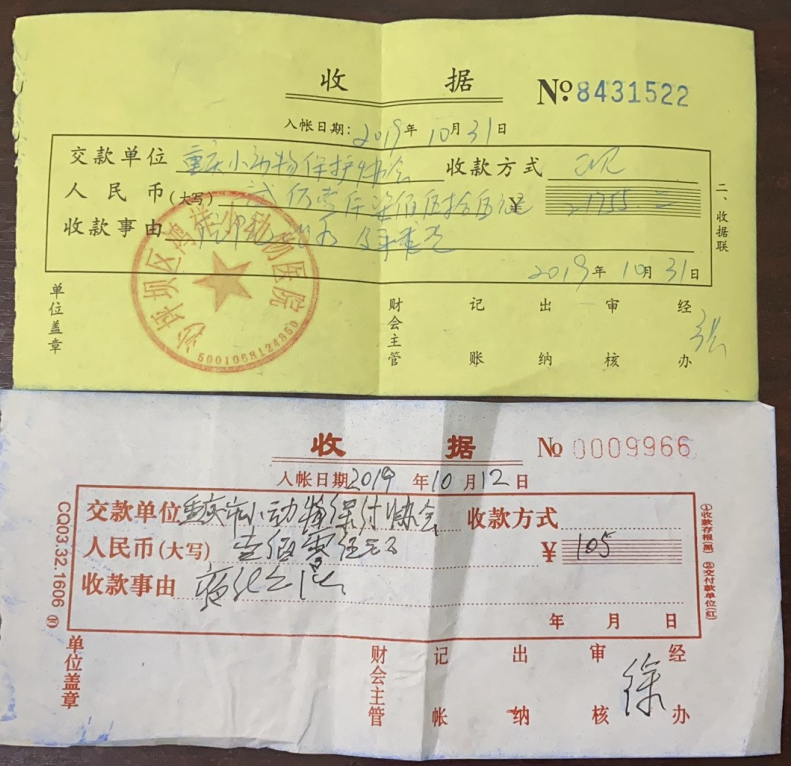 收 据 № 8431522
入帐日期: 2019年10月31日
交款单位 重庆小动物保护协会 收款方式 现
人民币(大写) 仟柒佰伍拾伍元 ¥ 21755
收款事由
2019年10月31日
二、收据联
单位盖章 财会主管 记账 出纳 审核 经办 张
沙坪坝区鸿祥小动物医院
5001068124850
收 据 № 0009966
入帐日期2019年10月12日
交款单位重庆市小动物保付协会 收款方式
人民币(大写) 壹佰零伍元 ¥ 105
收款事由
年 月 日
CQ03.32.1606
①收款存根(黑) ②交付款单位(红)
单位盖章 财会主管 记帐 出纳 审核 经办 徐